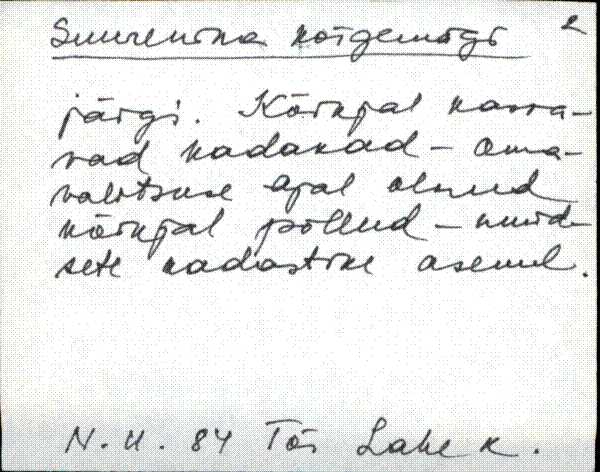 Suurenina kõigemägi 2
järgi. Kõrkjal kasva-
vad kadakad - oma-
valitsuse ajal olnud
kõrkjal põllud - nüüd
sete kadastike asemel.
N. U. 84 Tõs Lahe k.